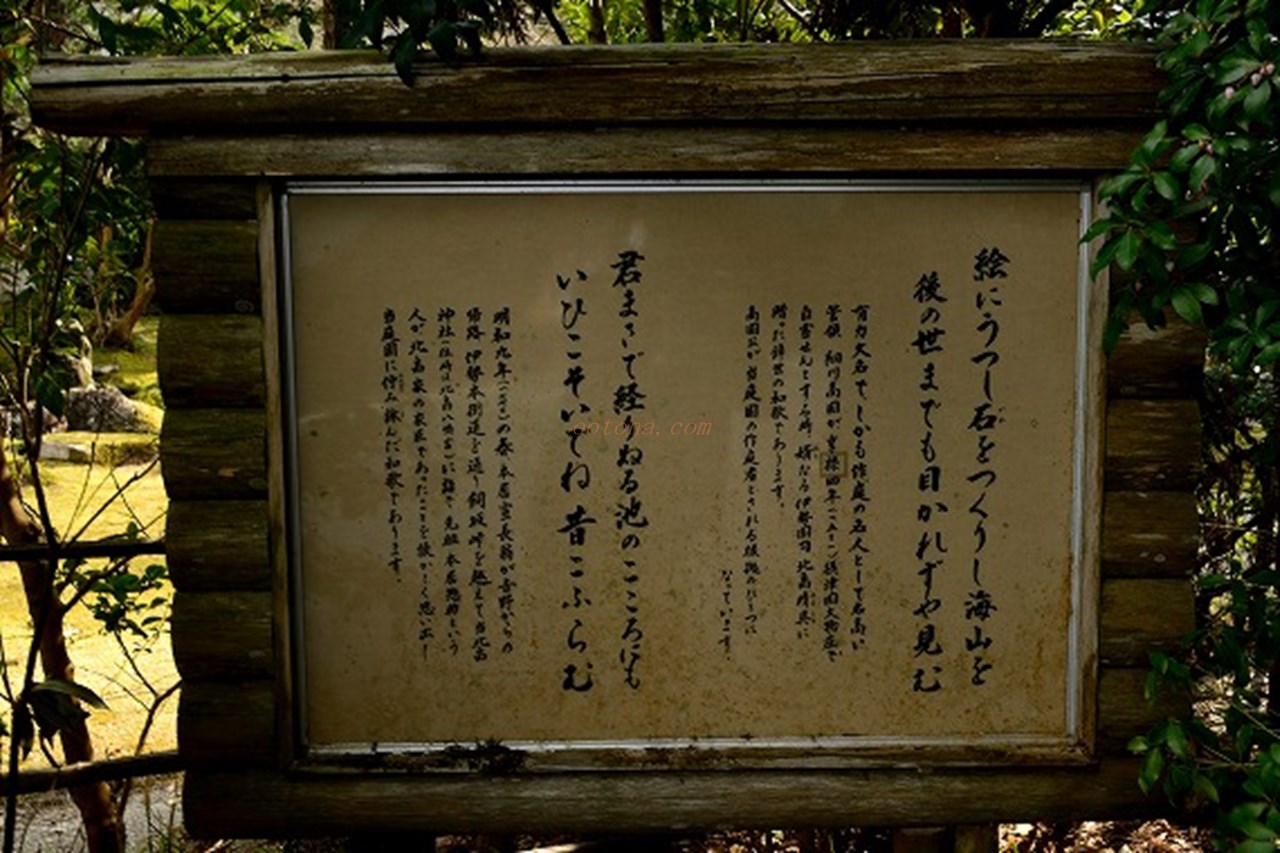 絵にうつし石をつくりし海山を
後の世までも目かれずや見む
有力大名で、しかも作庭の五人として名高い
管領 細川高国が享禄四年(一五三一)摂津国大物庄で
自害せんとする時、婿たる伊勢国司北畠晴具に
贈った辞世の和歌であります。
高国公が当庭園の作庭者とされる根拠の一つに
なっています。
君まさで経ぬる池のこころにも
いひこそいでね昔こふらむ
明和九年(一七七二)の春 本居宣長翁が吉野からの
帰路 伊勢本街道を通り飼坂峠を越えて当北畠
神社(在時は北畠八幡宮)に詣で 先祖 本居惣助という
人が北畠家の家臣であったことを懐かしく思い出し
当庭園に佇み詠んだ和歌であります。
aotona.com